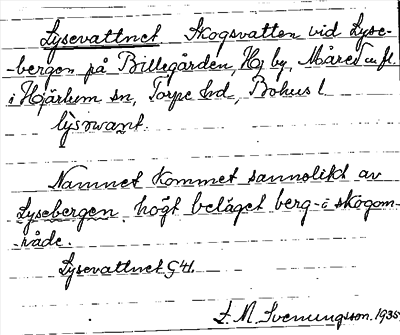 Lysevattnet Skogsvatten vid Lyse-
-bergen på Billegården, Hj by, Måred m fl.
i Hjärtum sn, Torpe hd, Bohus l.
Namnet kommet sannolikt av
Lysebergen, högt beläget berg- i skogom-
-råde.
Lysevattnet G41.
L. M. Svenungsson. 1935